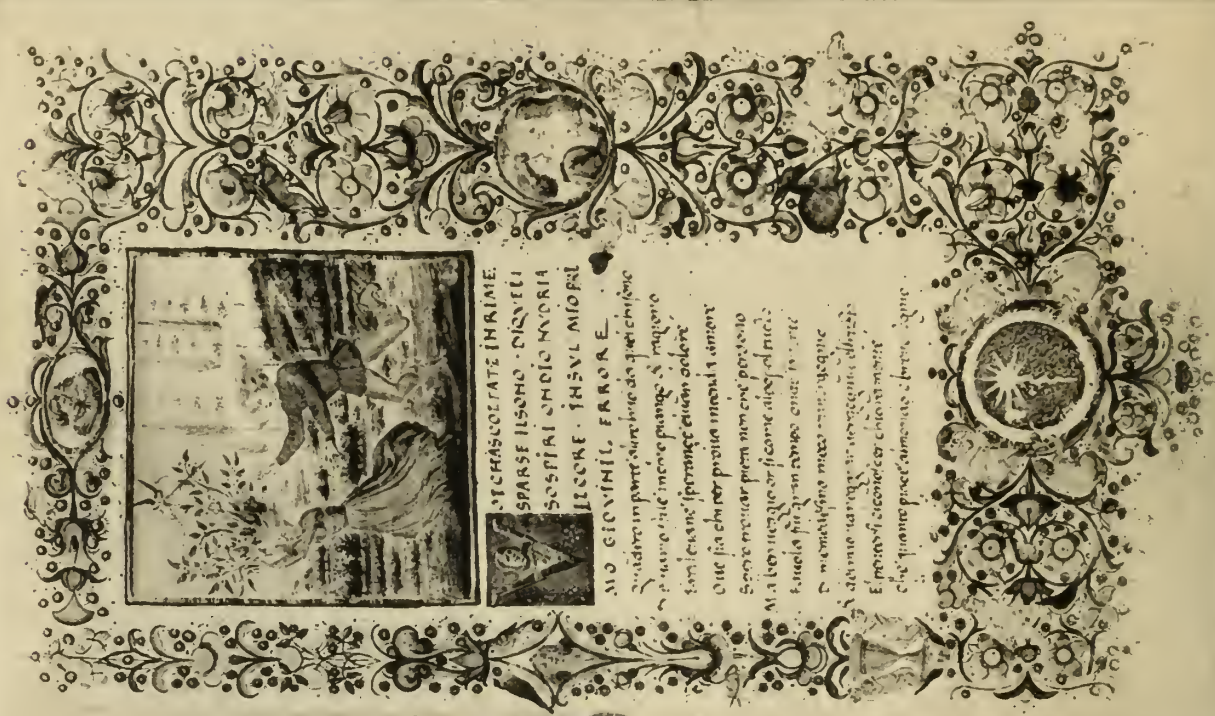 VOI CHASCOLTATE INRIME
SPARSE ILSONO DIQVELI
SOSPIRI ONDIO NVDRIA
ILCORE · INSVL MIO PRI
MO GIOVINIL ERRORE
Quadro in parte altro da quel chisono
in chio piango & ragiono
speranze eluan dolore
Oue sia chi per proua intenda amore
Spero trouar pieta non che perdono
Ma ben ueggio or si come al popol
fauola fui gran tempo onde
di me medesmo meco mi uergogno
El pentersi elconoscer chiaramente
Che quanto piace almondo e breue sogno